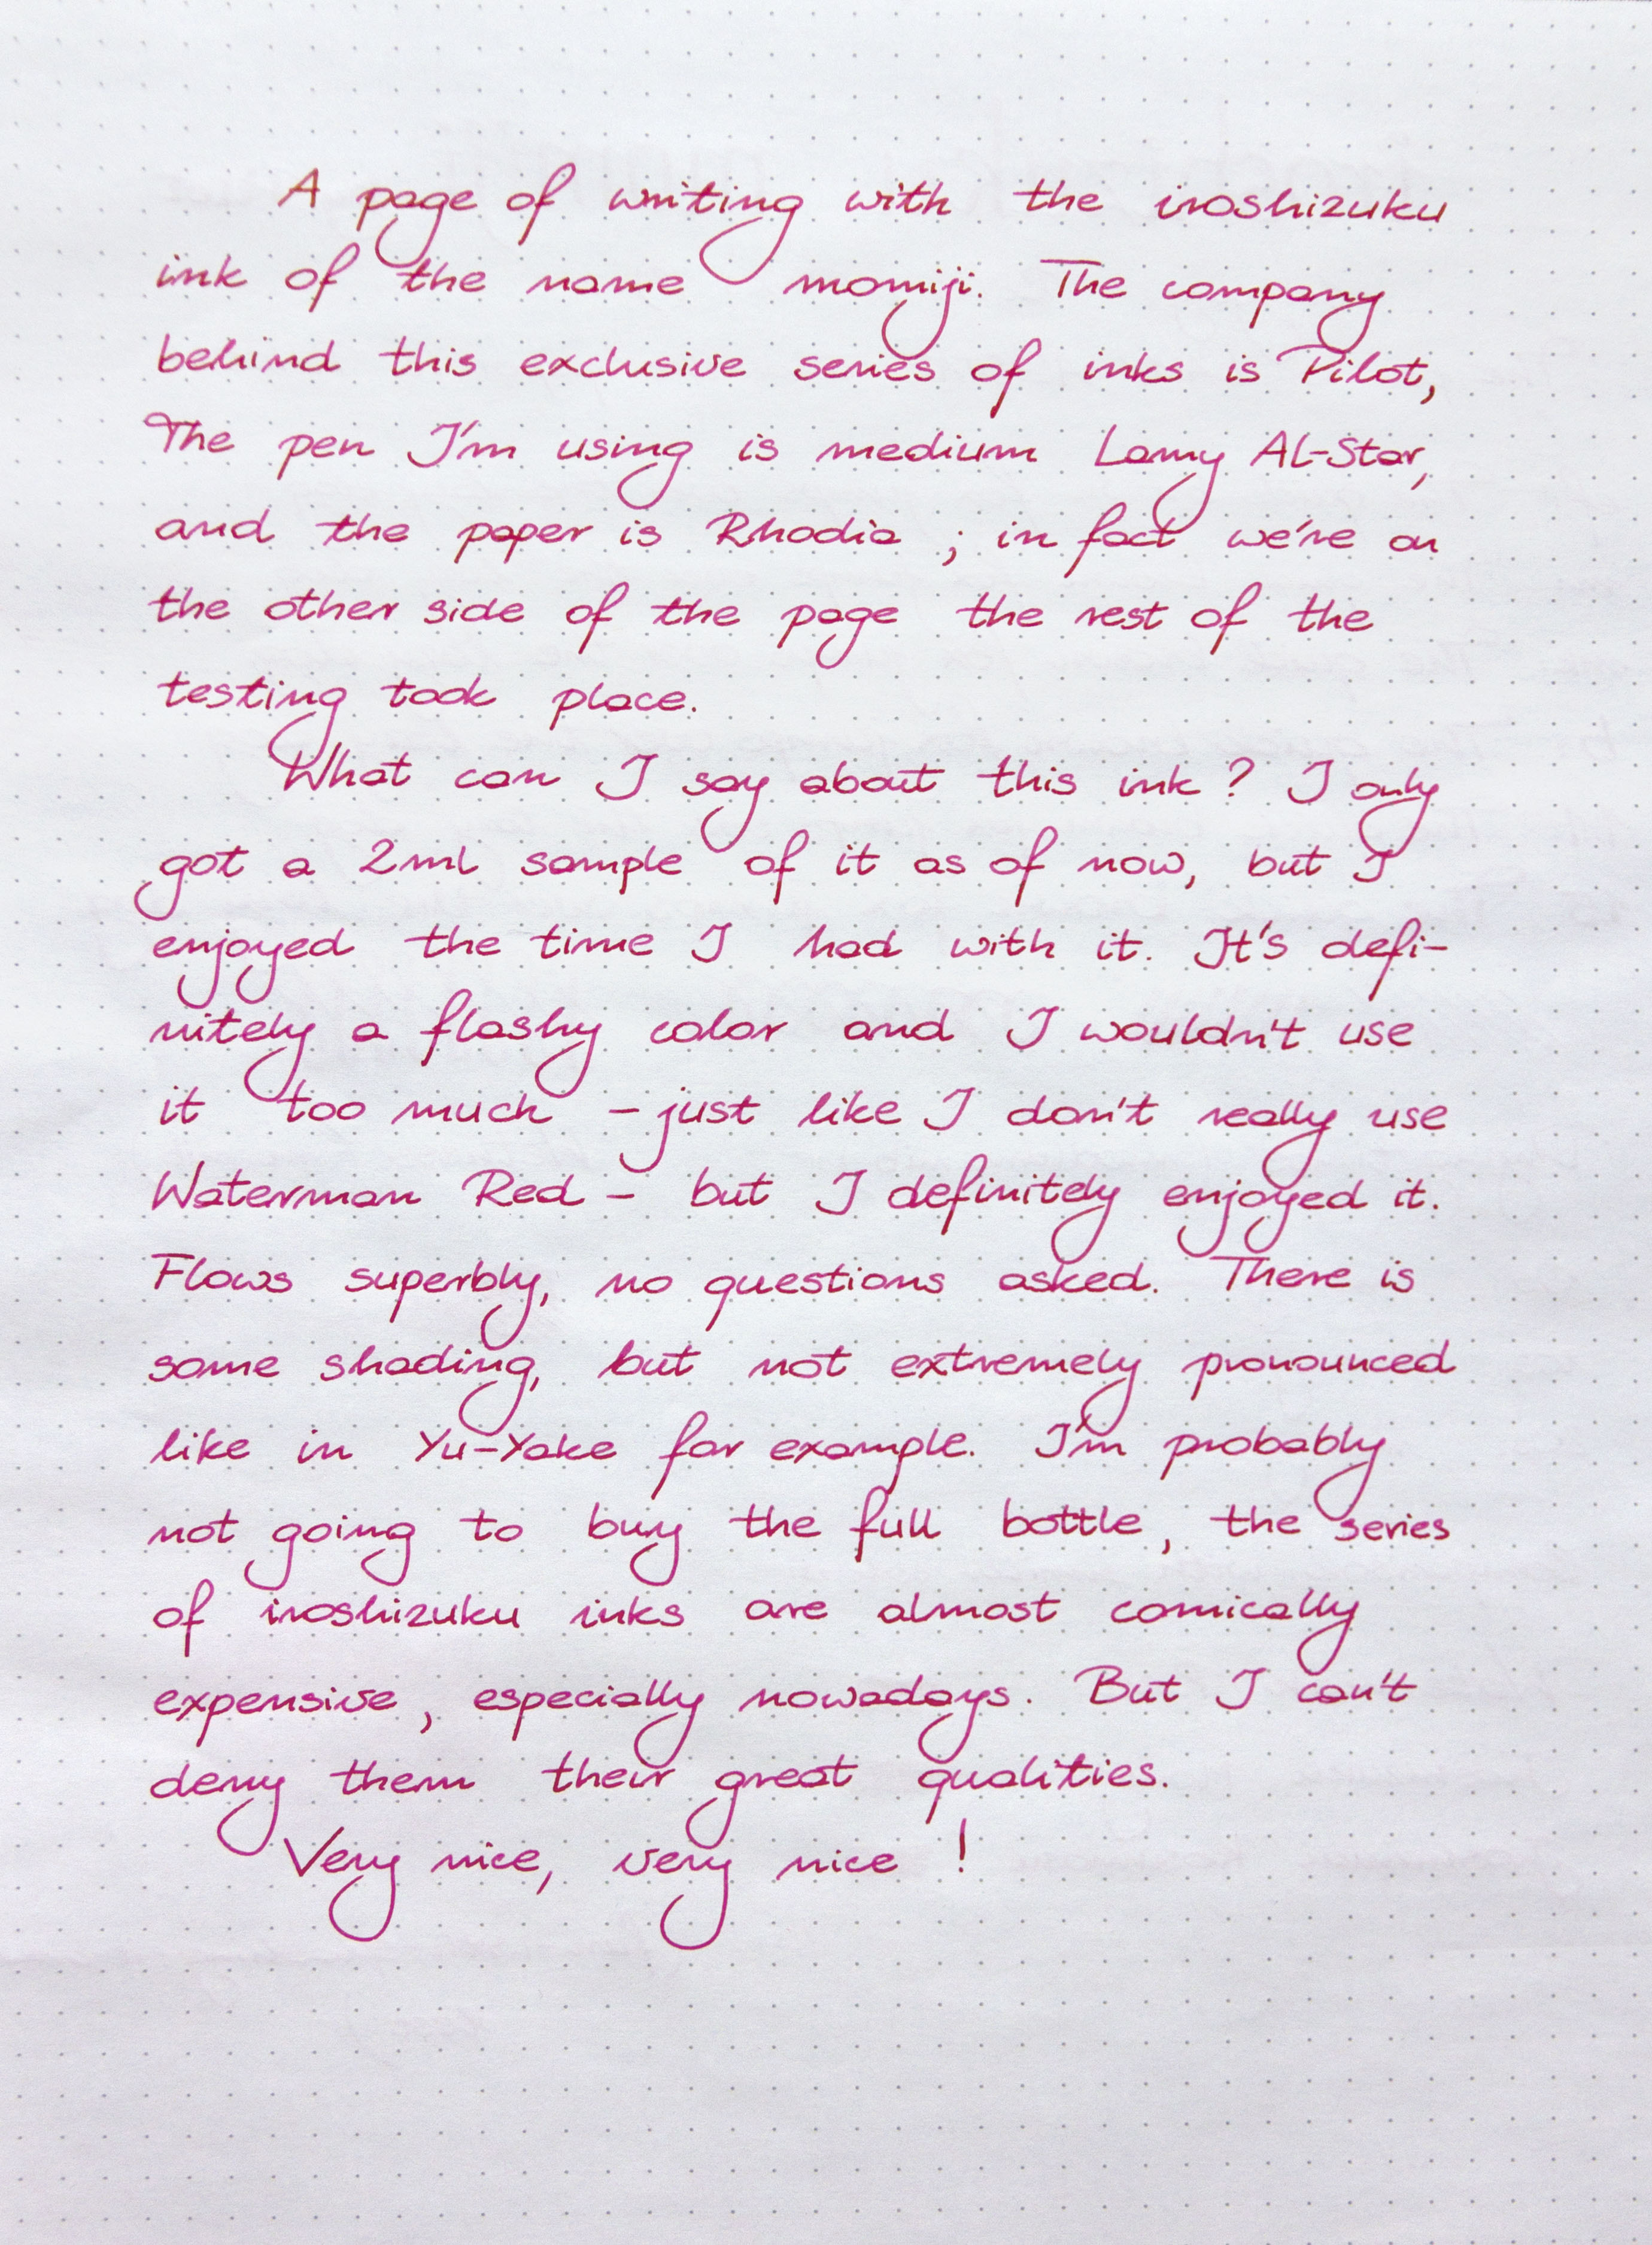 A page of writing with the iroshizuku
ink of the name momiji. The company
behind this exclusive series of inks is Pilot,
The pen I'm using is medium Lamy AL-Star,
and the paper is Rhodia ; in fact we're on
the other side of the page the rest of the
testing took place.
What can I say about this ink ? I only
got a 2ml sample of it as of now, but I
enjoyed the time I had with it. It's defi-
nitely a flashy color and I wouldn't use
it too much - just like I don't really use
Waterman Red - but I definitely enjoyed it.
Flows superbly, no questions asked. There is
some shading, but not extremely pronounced
like in Yu-Yake for example. I'm probably
not going to buy the full bottle, the series
of iroshizuku inks are almost comically
expensive, especially nowadays. But I can't
deny them their great qualities.
Very nice, very nice !